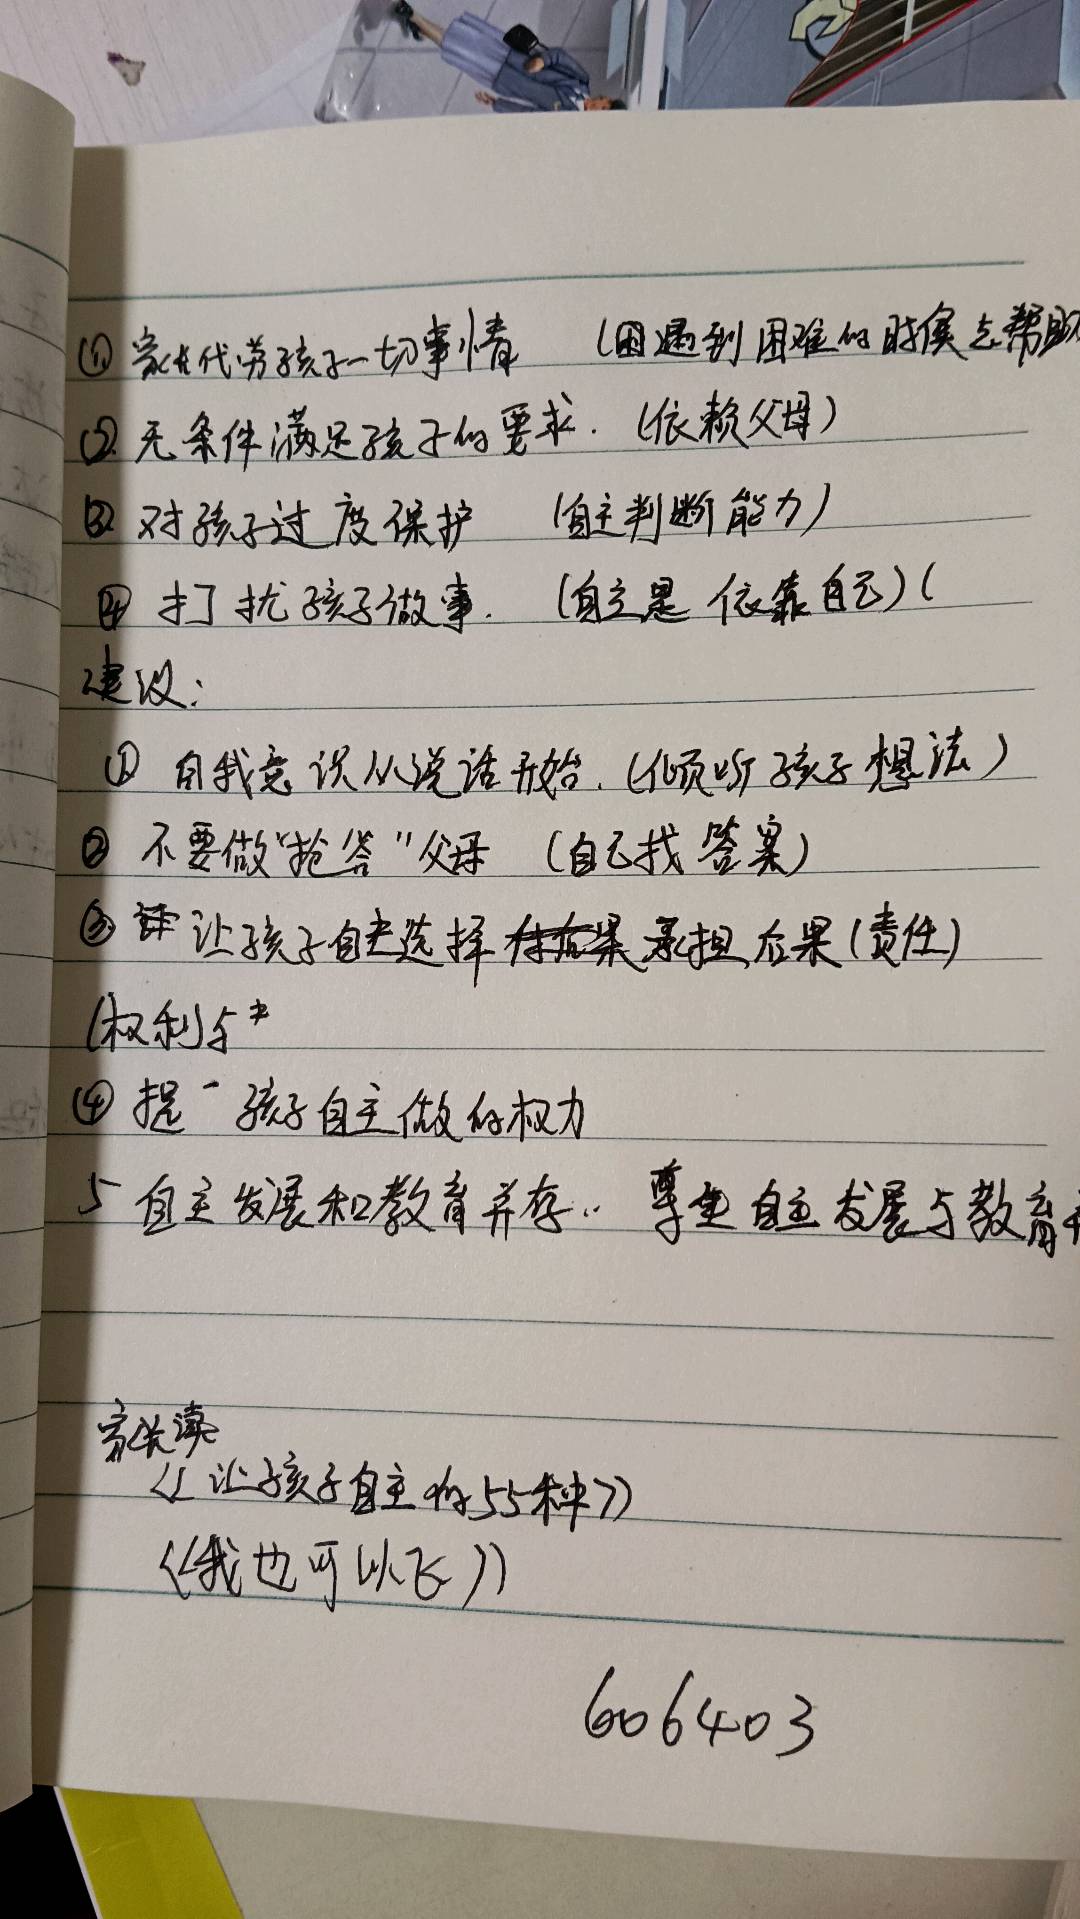 ① 家长代劳孩子一切事情 (遇到困难的时候去帮助
② 无条件满足孩子的要求. (依赖父母)
③ 对孩子过度保护 (自主判断能力)
④ 打扰孩子做事. (自主是依靠自己) (
建议:
① 自我意识从说话开始. (倾听孩子想法)
② 不要做“抢答”父母 (自己找答案)
③ 让孩子自主选择 承担后果 (责任)
(权利与
④ 提一孩子自主做的权力
5 自主发展和教育并存.. 自主发展与教育
家长读
《让孩子自主的55种》
《我也可以飞》
606403